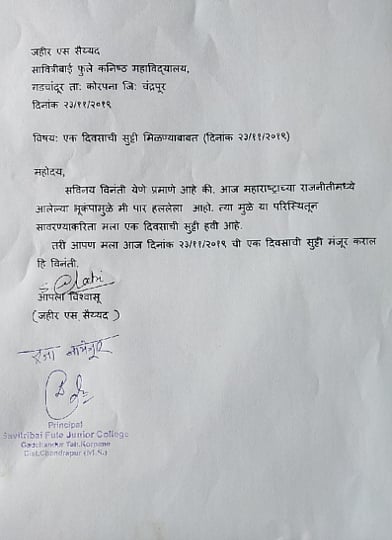 जहीर एस सैय्यद
सावित्रीबाई फुले कनिष्ठ महाविद्यालय,
गडचांदूर ताः कोरपना जिः चंद्रपूर
दिनांक २३/११/२०१९
विषयः एक दिवसाची सुट्टी मिळण्याबाबत (दिनांक २३/११/२०१९)
महोदय,
सविनय विनंती येणे प्रमाणे आहे की, आज महाराष्ट्राच्या राजनीतीमध्ये
आलेल्या भूकंपामुळे मी पार हललेला आहो. त्या मुळे या परिस्थितून
सावरण्याकरिता मला एक दिवसाची सुट्टी हवी आहे.
तरी आपण मला आज दिनांक २३/११/२०१९ ची एक दिवसाची सुट्टी मंजूर कराल
हि विनंती.
आपला विश्वासू
(जहीर एस सैय्यद )
रजा नामंजूर
Principal
Savitribai Fule Junior College
Gadchandur Tah.Korpana
Dist.Chandrapur (M.S.)